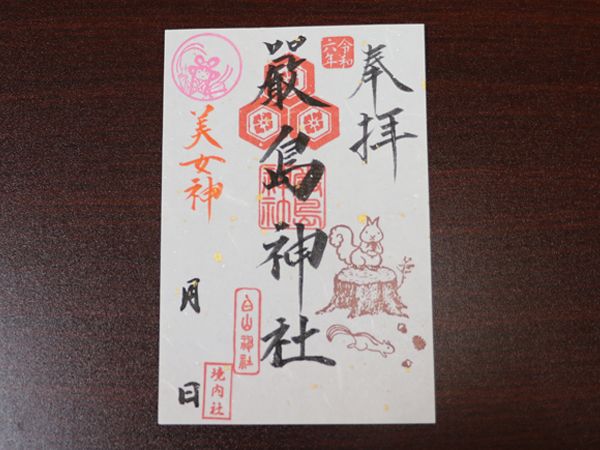 奉拝
令和
六年
嚴島神社
嚴島
神社
美女神
月
日
白山神社
境内社